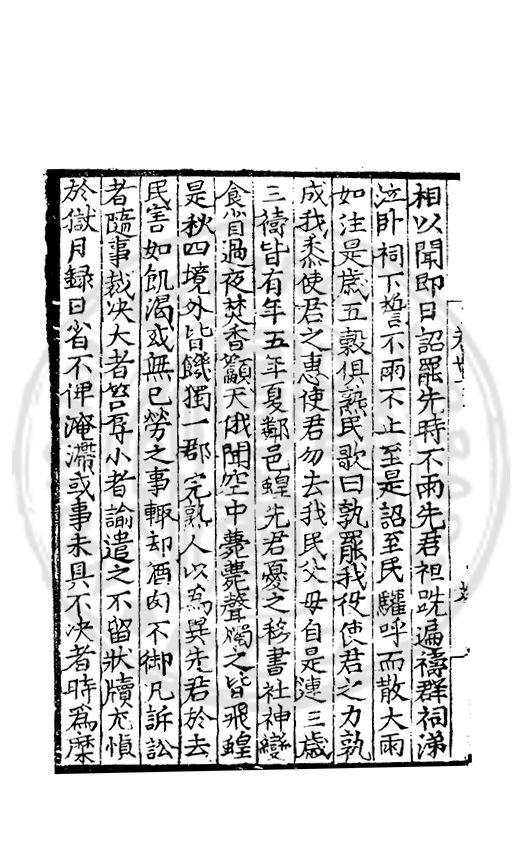 相以聞即日詔罷先時不雨先君袒跣遍禱群祠涕
泣卧祠下誓不雨不止至是詔至民驩呼而散大雨
如注是歳五穀俱熟民歌曰孰罷我役使君之力孰
成我黍使君之惠使君勿去我民父母自是連三歳
三禱皆有年五年夏鄰邑蝗先君憂之移書社神變
食省過夜焚香籲天俄聞空中薨薨聲燭之皆飛蝗
是秋四境外皆饑獨一郡完熟人以為異先君於去
民害如飢渇或無已勞之事輙却酒肉不御凡訴訟
者隨事裁决大者笞辱小者諭遣之不留狀牘尤慎
於獄月録日省不俾淹滯或事未具不决者時為糜